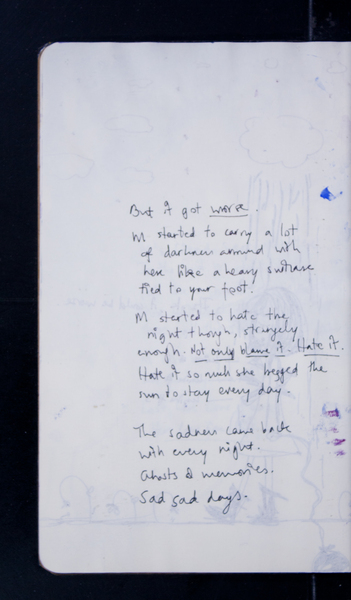 But it got worse.
M started to carry a lot
of darkness around with
her like a heavy suitcase
tied to your foot.
M started to hate the
night though, strangely
enough. Not only blame it. Hate it.
Hate it so much she begged the
sun to stay every day.
The sadness came back
with every night.
Ghosts & memories.
Sad sad days.